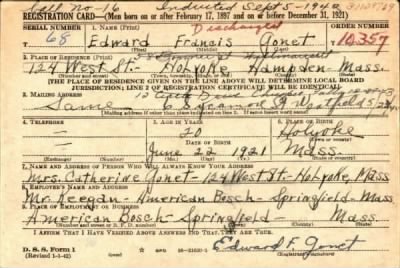 Call no - 16 Inducted Sept-5-1942
REGISTRATION CARD—(Men born on or after February 17, 1897 and on or before December 31, 1921)
Discharged
SERIAL NUMBER
1. NAME (Print)
ORDER NUMBER
68
Edward Francis Gonet
10,357
(First) (Middle) (Last)
2. PLACE OF RESIDENCE (Print)
124 West St- Holyoke Hampden Mass.
(Number and street) (Town, township, village, or city) (County) (State)
[THE PLACE OF RESIDENCE GIVEN ON THE LINE ABOVE WILL DETERMINE LOCAL BOARD
JURISDICTION; LINE 2 OF REGISTRATION CERTIFICATE WILL BE IDENTICAL]
3. MAILING ADDRESS
Same
4. TELEPHONE
5. AGE IN YEARS
6. PLACE OF BIRTH
20
Holyoke
DATE OF BIRTH
June 22 1921
Mass.
(Exchange) (Number)
(Mo.) (Day) (Yr.)
(State or country)
7. NAME AND ADDRESS OF PERSON WHO WILL ALWAYS KNOW YOUR ADDRESS
Mrs. Catherine Gonet - 124 West St - Holyoke, Mass
8. EMPLOYER'S NAME AND ADDRESS
Mr. Keegan - American Bosch - Springfield - Mass
9. PLACE OF EMPLOYMENT OR BUSINESS
American Bosch - Springfield - Mass.
(Number and street or R. F. D. number) (Town) (County) (State)
I AFFIRM THAT I HAVE VERIFIED ABOVE ANSWERS AND THAT THEY ARE TRUE.
D. S. S. Form 1
(Revised 1-1-42)
Edward F. Gonet
(Registrant's signature)